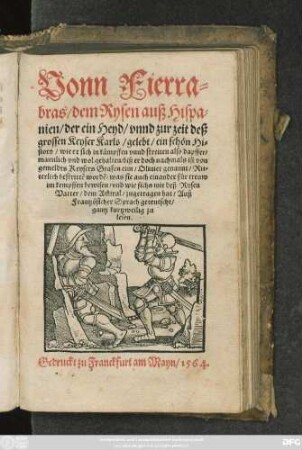 Vonn Fierra-
bras/ dem Rysen auß Hispa-
nien/ der ein Heyd/ vnnd zur zeit deß
grossen Keyser Karls/ gelebt/ ein schön Hi-
story/ wie er sich in kämpffen vnnd streiten also dapffer
mannlich vnd wol gehalten biß er doch nachmals
gemeldts Keysers Grafen ein/ Oliuier genannt/
was sie auch einander für
im kempffen bewisen/ vnd wie sichs mit deß Rysen
Vatter/ dem zugetragen hat/ Auß
Frantzösischer Sprach geteutscht/
gantz kurtzweilig zu
lesen.
Gedruckt zu Franckfurt am Mayn/ 1564.